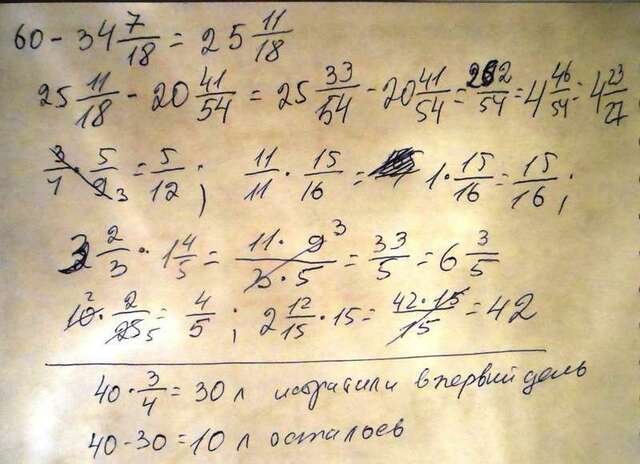 60 - 34 7/18 = 25 11/18
25 11/18 - 20 41/54 = 25 33/54 - 20 41/54 = 262/54 = 4 46/54 = 4 23/27
3/4 · 5/9 3 = 5/12 ; 11/11 · 15/16 = 1 · 15/16 = 15/16 ;
3 2/3 · 1 4/5 = 11 · 9 3 / 3 · 5 = 33/5 = 6 3/5
10 2 · 2/25 5 = 4/5 ; 2 12/15 · 15 = 42 · 15 / 15 = 42
40 · 3/4 = 30 л истратили в первий день
40 - 30 = 10 л осталоев